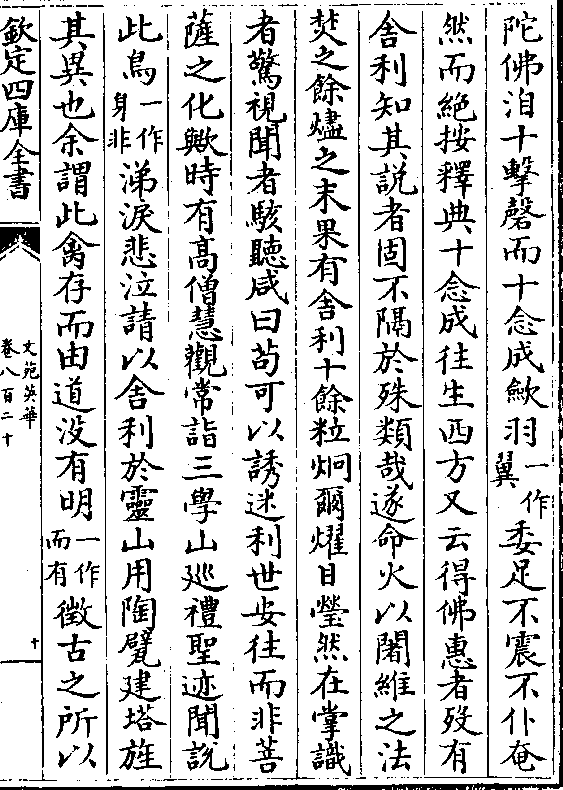 陀佛洎十擊磬而十念成歛羽一作翼委足不震不仆奄
然而絶按釋典十念成往生西方又云得佛惠者殁有
舍利知其説者固不隔於殊類哉遂命火以闍維之法
焚之餘燼之末果有舍利十餘粒炯爾燿目瑩然在掌識
者驚視聞者駭聽咸曰苟可以誘迷利世安往而非菩
薩之化歟時有髙僧慧觀常詣三學山巡禮聖迹聞説
此鳥一作身非涕淚悲泣請以舍利於靈山用陶甓建塔旌
其異也余謂此禽存而由道没有明一作而有徵古之所以
欽定四庫全書
文苑英華
卷八百二十
十